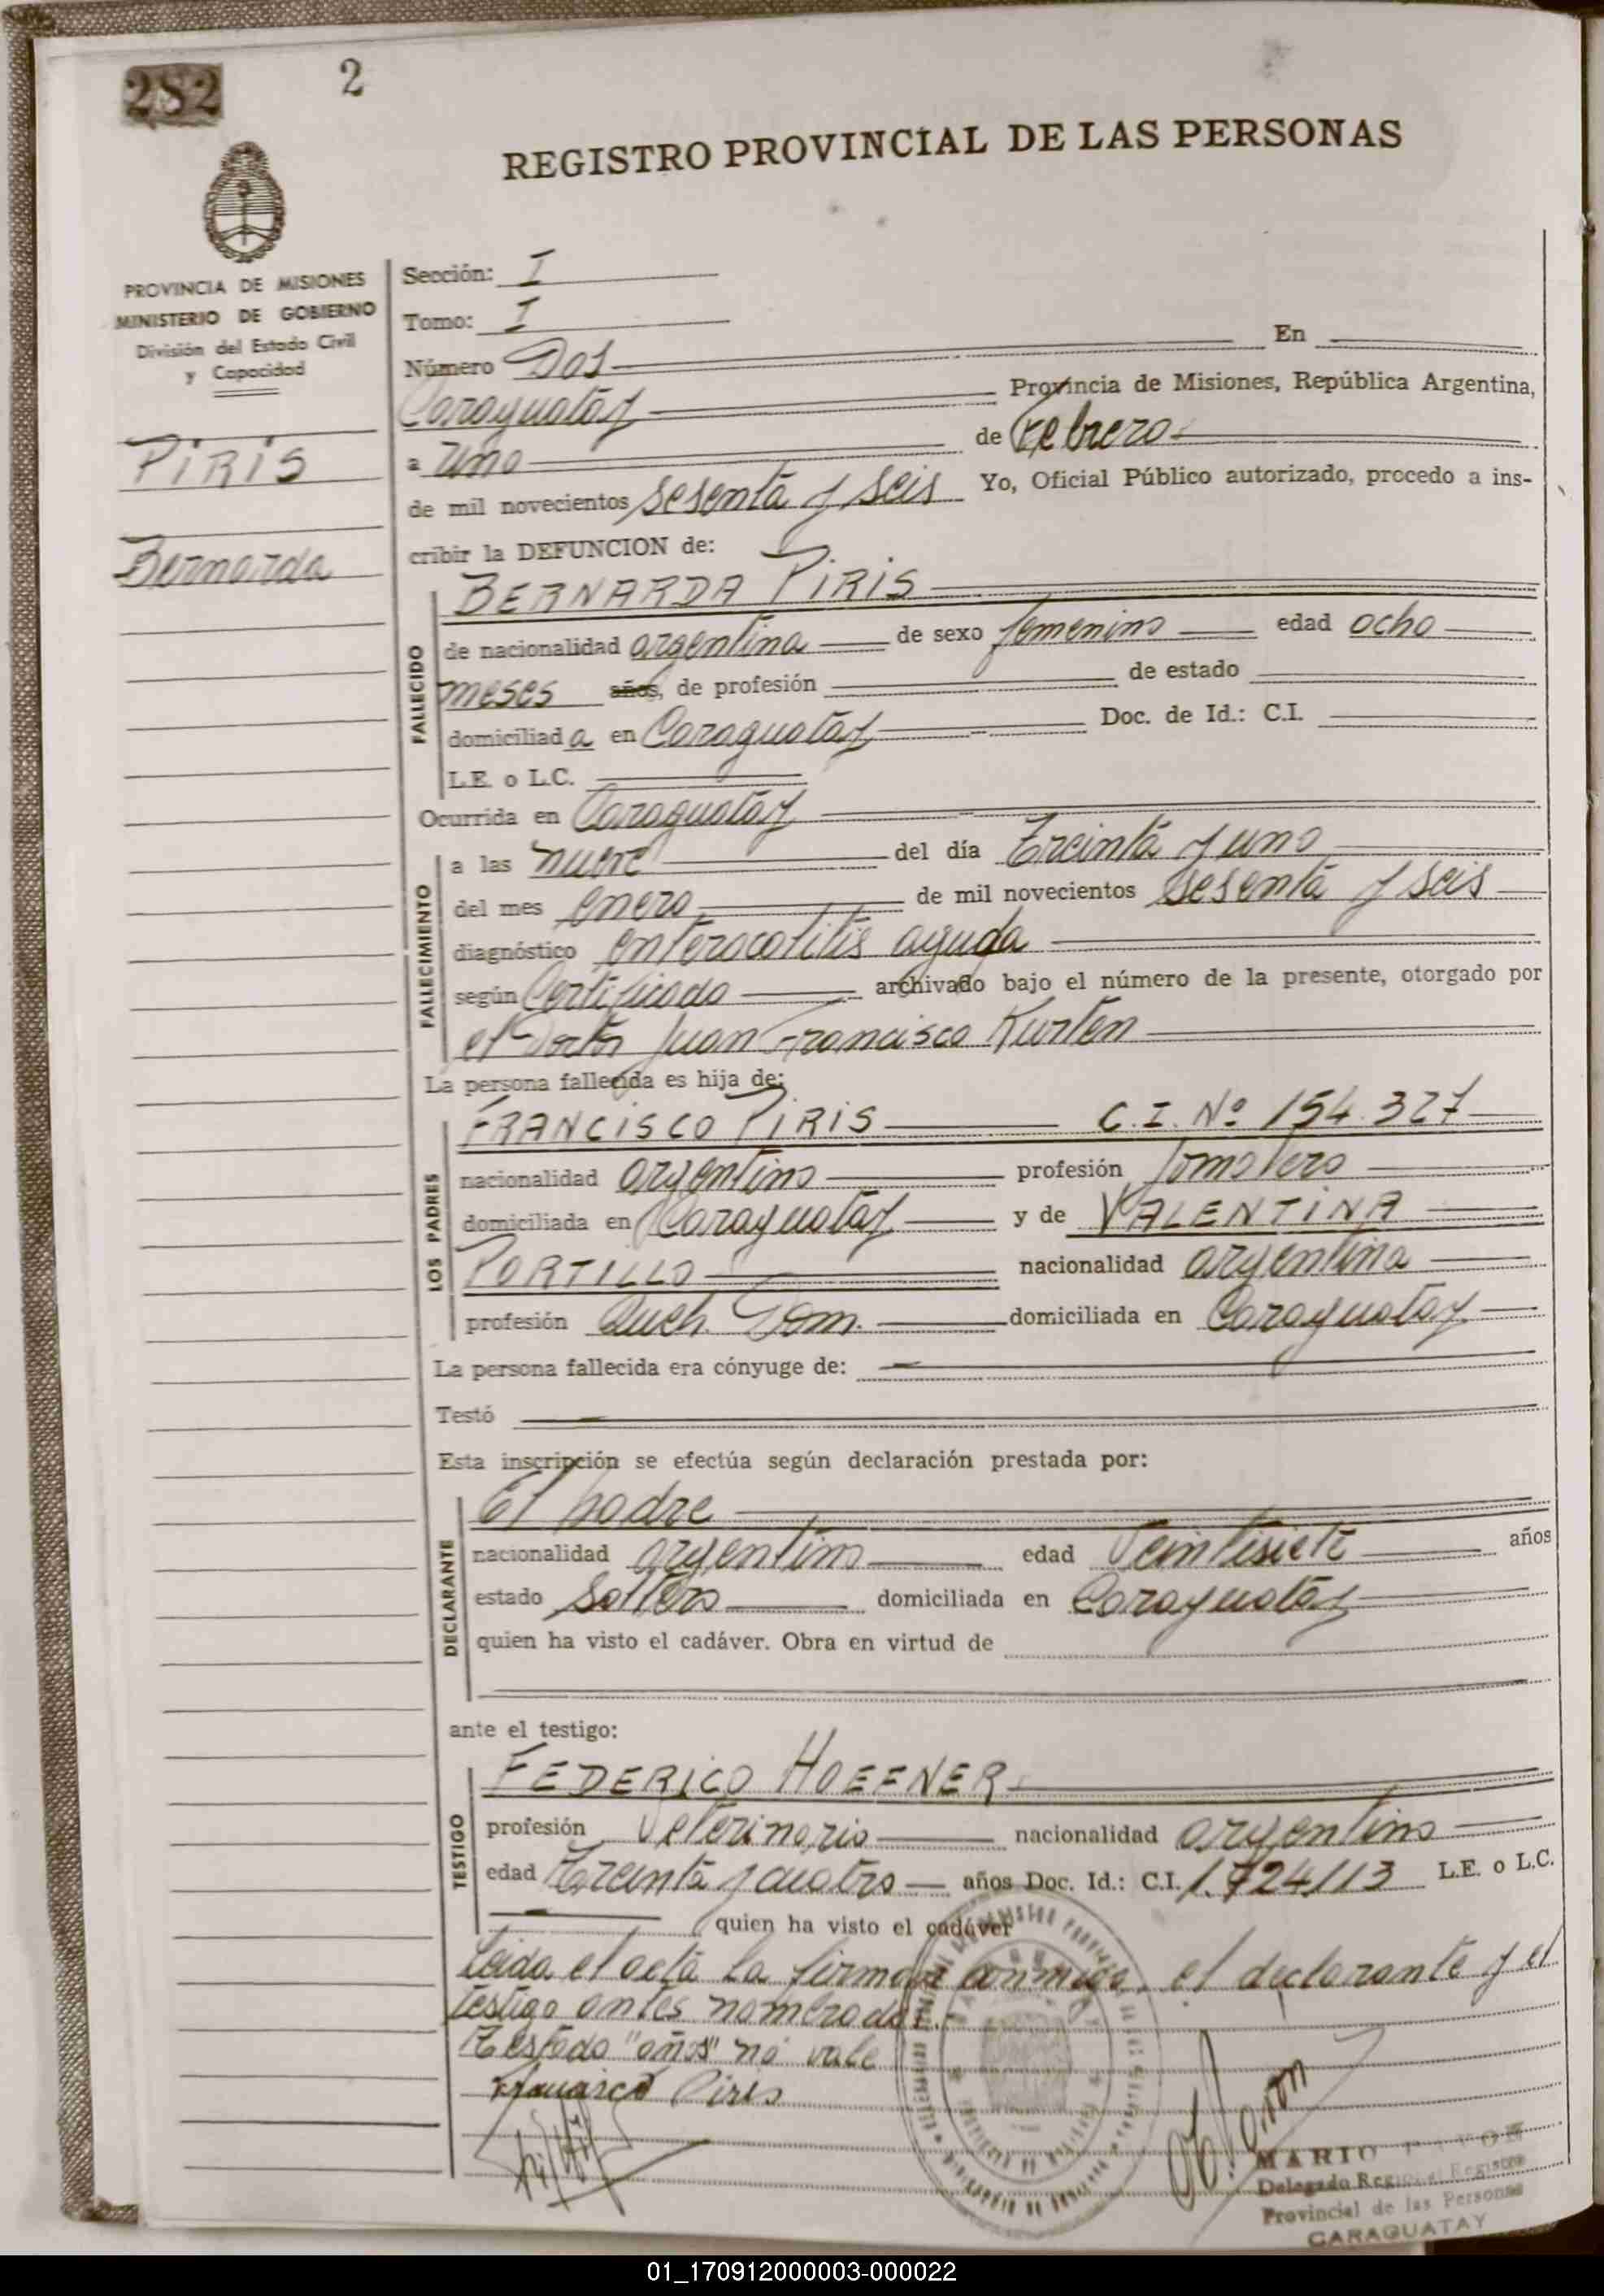 282
2
REGISTRO PROVINCIAL DE LAS PERSONAS
PROVINCIA DE MISIONES
MINISTERIO DE GOBIERNO
División del Estado Civil
y Capacidad
PIRIS
Bernarda
Sección: I
Tomo: I
Número Dos En
Caraguatay Provincia de Misiones, República Argentina,
a uno de Febrero
de mil novecientos sesenta y seis Yo, Oficial Público autorizado, procedo a ins-
cribir la DEFUNCION de:
BERNARDA PIRIS
FALLECIDO
de nacionalidad argentina de sexo femenino edad ocho
meses años, de profesión de estado
domiciliada en Caraguatay Doc. de Id.: C.I.
L.E. o L.C.
Ocurrida en Caraguatay
FALLECIMIENTO
a las nueve del día Treinta y uno
del mes enero de mil novecientos sesenta y seis
diagnóstico enterocolitis aguda
según Certificado archivado bajo el número de la presente, otorgado por
el Doctor Juan Francisco Kurten
La persona fallecida es hija de:
LOS PADRES
FRANCISCO PIRIS C.I. Nº 154.327
nacionalidad argentino profesión Jornalero
domiciliada en Caraguatay y de VALENTINA
PORTILLO nacionalidad argentina
profesión Queh. Dom. domiciliada en Caraguatay
La persona fallecida era cónyuge de:
Testó
Esta inscripción se efectúa según declaración prestada por:
DECLARANTE
El padre
nacionalidad argentino edad Veintisiete años
estado soltero domiciliada en Caraguatay
quien ha visto el cadáver. Obra en virtud de
ante el testigo:
TESTIGO
FEDERICO HOEFNER
profesión Veterinario nacionalidad argentino
edad Treinta y cuatro años Doc. Id.: C.I. 1.724113 L.E. o L.C.
quien ha visto el cadáver
Leida el acta la firman conmigo, el declarante y el
testigo antes nombrados.-
Testado "años" no vale
Francisco Piris
MARIO PAVON
Delegado Regional Registro
Provincial de las Personas
CARAGUATAY
01_170912000003-000022